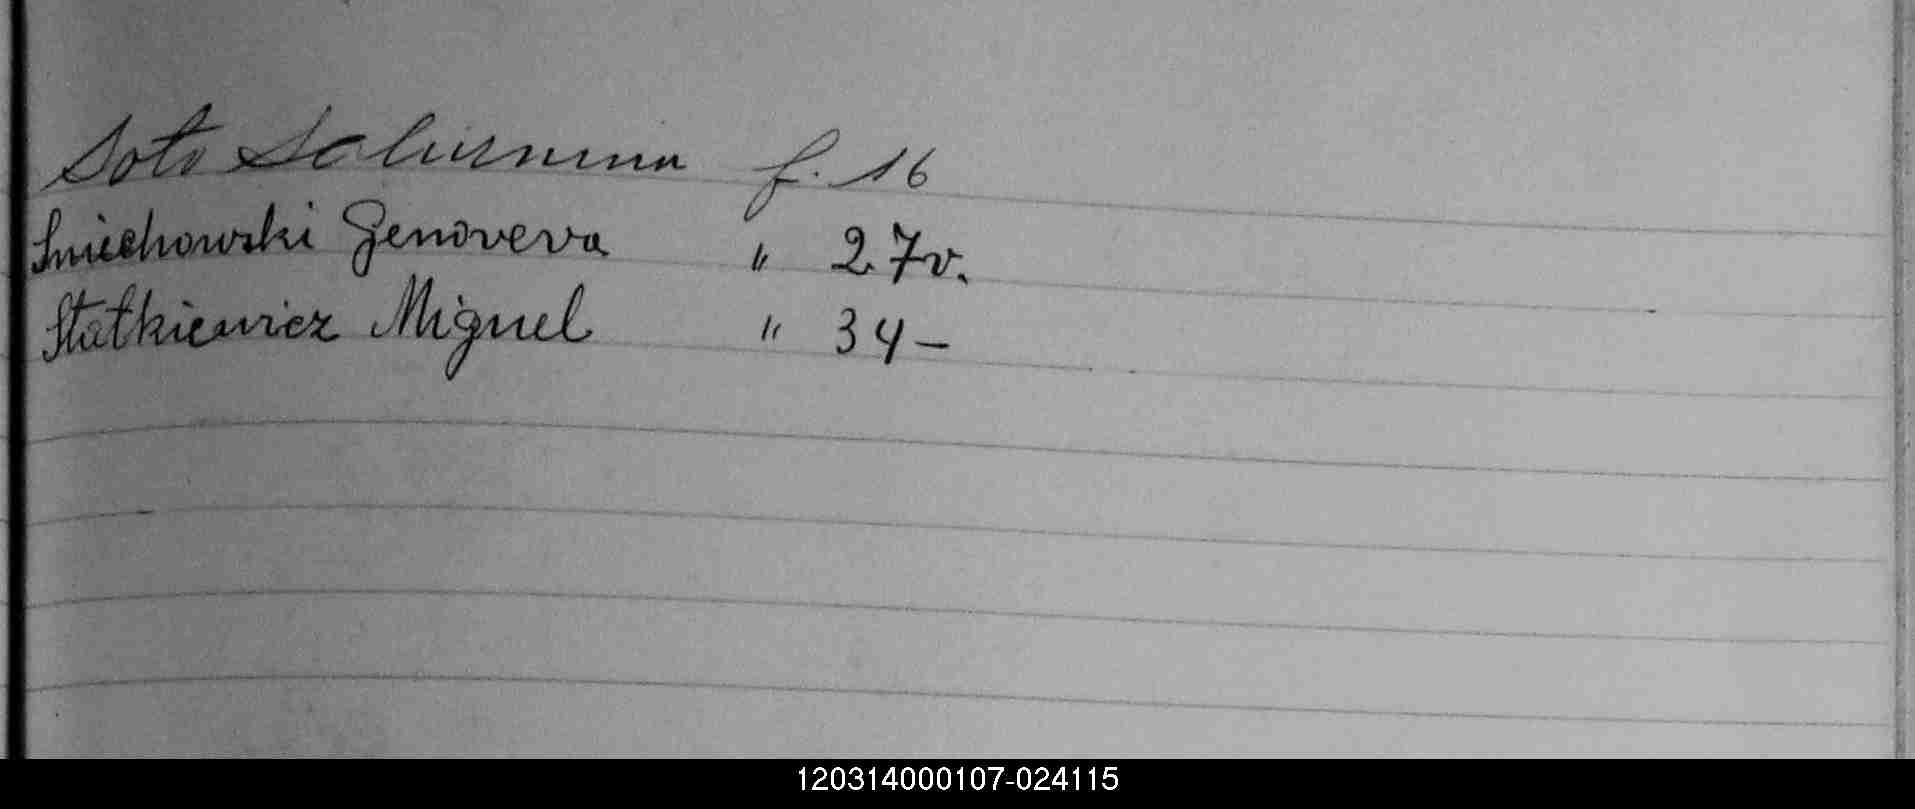 Soto Saturnina f. 16
Sniechowski Genoveva " 27v.
Statkiewicz Miguel " 34 -
120314000107-024115